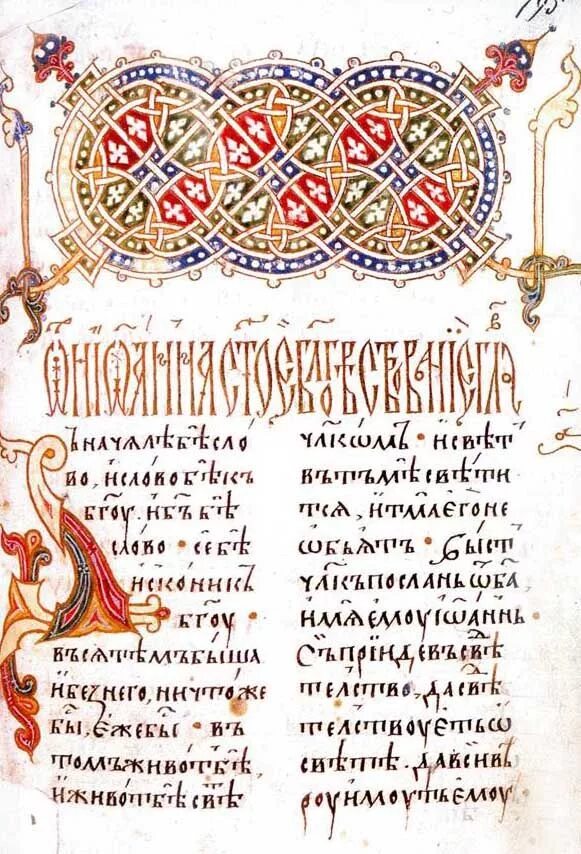 195
Ѿ Иѡанна ст҃ое гла
ъ начялѣ бѣ сло
во, и слово бѣ къ
б҃гоу. и б҃ъ бѣ
слово · се бѣ
искони къ
б҃гоу ·
въся тѣмъ быша
и без него, ничтоже
бы, еже бы · въ
томъ живот бѣ,
и живот бѣ свѣ
ч҃лкѡмъ · и свѣт
въ тъмѣ свѣти
тся, и тма его не
ѡбьятъ · быст
ч҃лкъ посланъ ѿ б҃а,
имя емоу іѡаннъ
Съ прїиде въ свѣ
телство, да свѣ
телствоуеть ѡ
свѣтѣ. да вси вѣ
роу имоуть емоу